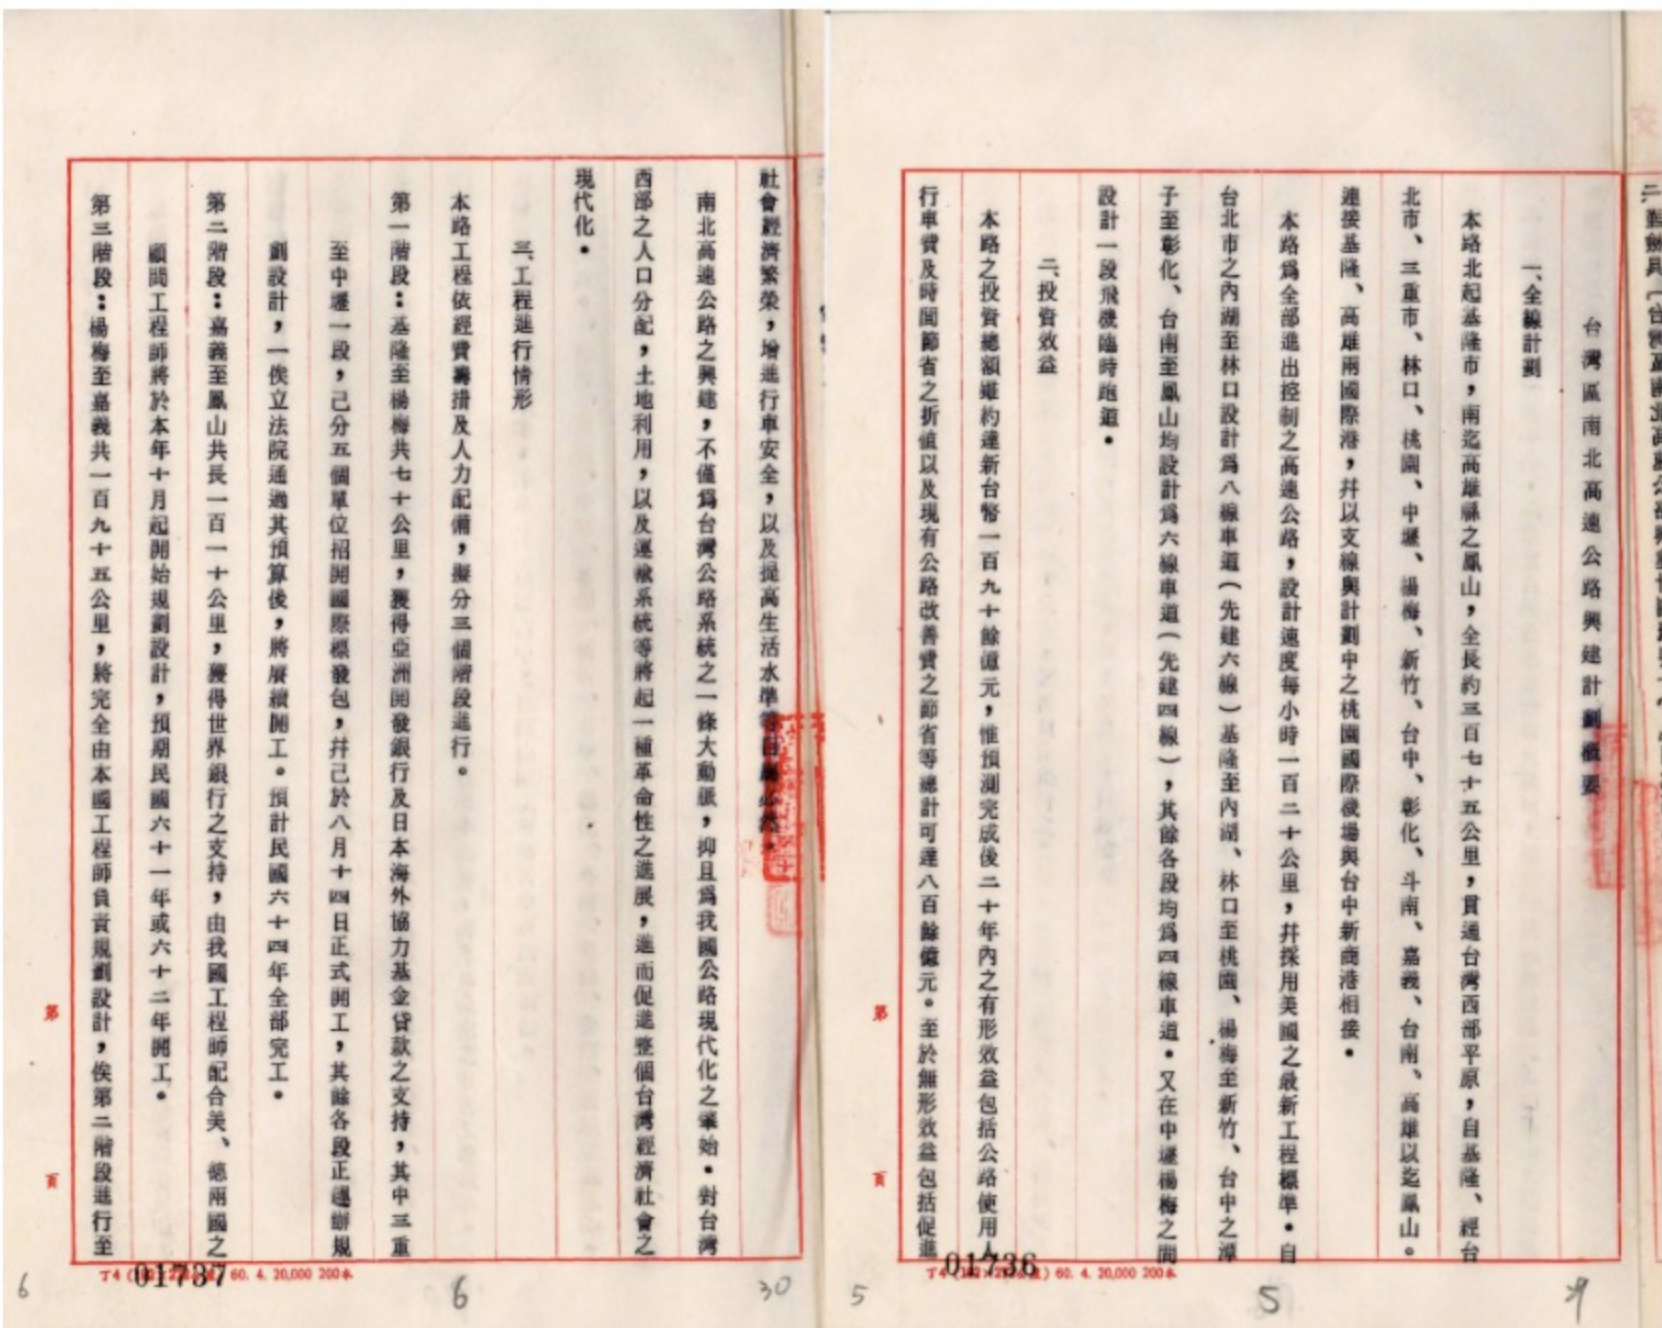 台灣區南北高速公路興建計劃概要
一、全線計劃
本路北起基隆市，南迄高雄縣之鳳山，全長約三百七十五公里，貫通台灣西部平原，自基隆、經台
北市、三重市、林口、桃園、中壢、楊梅、新竹、台中、彰化、斗南、嘉義、台南、高雄以迄鳳山。
連接基隆、高雄兩國際港，幷以支線與計劃中之桃園國際機場與台中新商港相接。
本路爲全部進出控制之高速公路，設計速度每小時一百二十公里，幷採用美國之最新工程標準。自
台北市之內湖至林口設計爲八線車道（先建六線）基隆至內湖、林口至桃園、楊梅至新竹、台中之潭
子至彰化、台南至鳳山均設計爲六線車道（先建四線），其餘各段均爲四線車道。又在中壢楊梅之間
設計一段飛機臨時跑道。
二、投資效益
本路之投資總額雖約達新台幣一百九十餘億元，惟預測完成後二十年內之有形效益包括公路使用人
行車費及時間節省之折値以及現有公路改善費之節省等總計可達八百餘億元。至於無形效益包括促進
第
頁
01736
丁4 60. 4. 20,000 200本
5
5
社會經濟繁榮，增進行車安全，以及提高生活水準等
南北高速公路之興建，不僅爲台灣公路系統之一條大動脈，抑且爲我國公路現代化之肇始。對台灣
西部之人口分配，土地利用，以及運輸系統等將起一種革命性之進展，進而促進整個台灣經濟社會之
現代化。
三、工程進行情形
本路工程依經費籌措及人力配備，擬分三個階段進行。
第一階段：基隆至楊梅共七十公里，獲得亞洲開發銀行及日本海外協力基金貸款之支持，其中三重
至中壢一段，已分五個單位招開國際標發包，幷已於八月十四日正式開工，其餘各段正趕辦規
劃設計，一俟立法院通過其預算後，將賡續開工。預計民國六十四年全部完工。
第二階段：嘉義至鳳山共長一百一十公里，獲得世界銀行之支持，由我國工程師配合美、德兩國之
顧問工程師將於本年十月起開始規劃設計，預期民國六十一年或六十二年開工。
第三階段：楊梅至嘉義共一百九十五公里，將完全由本國工程師負責規劃設計，俟第二階段進行至
第
頁
01737
丁4 60. 4. 20,000 200本
6
6
30